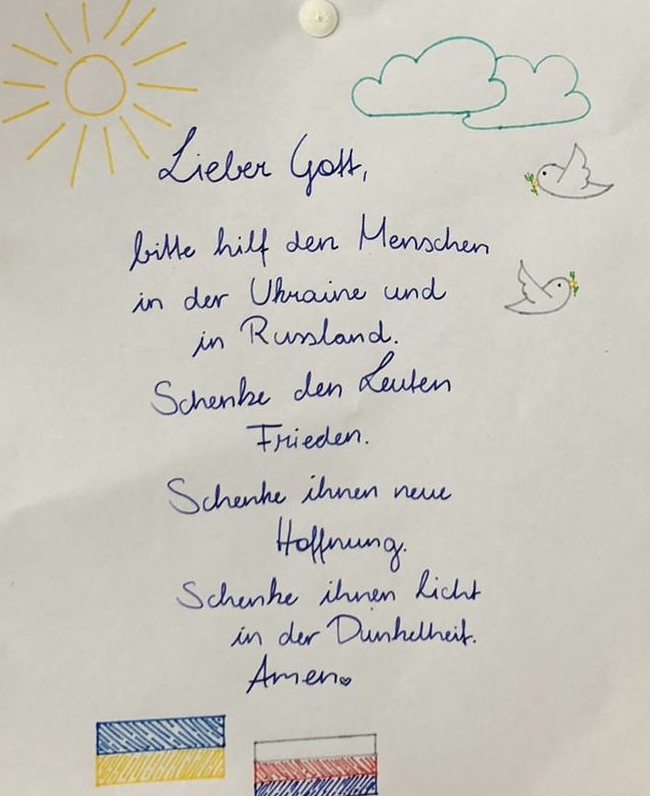 Lieber Gott,
bitte hilf den Menschen
in der Ukraine und
in Russland.
Schenke den Leuten
Frieden.
Schenke ihnen neue
Hoffnung.
Schenke ihnen Licht
in der Dunkelheit.
Amen